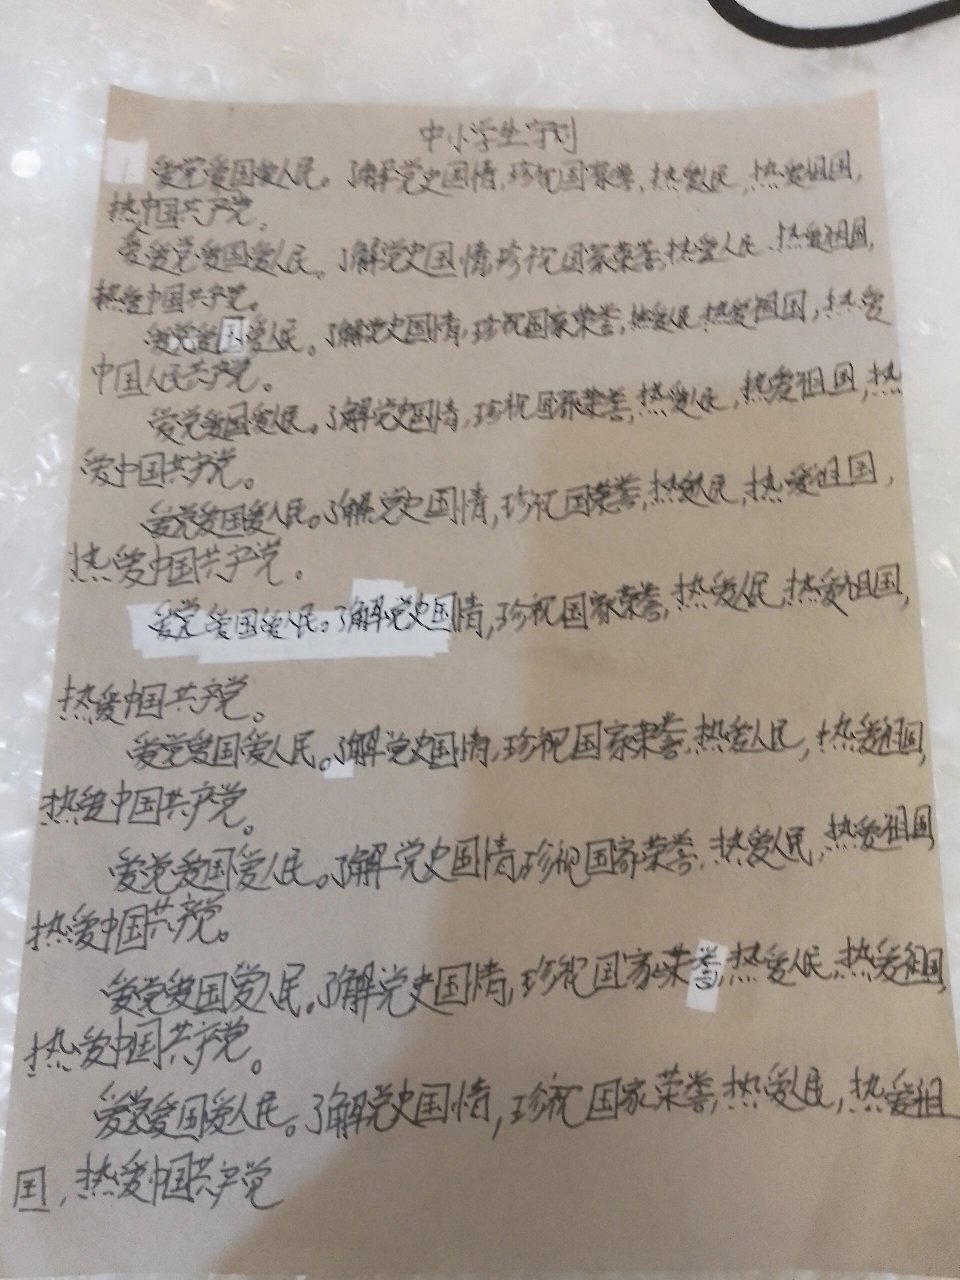 中小学生守则
爱党爱国爱人民。了解党史国情,珍视国家荣誉,热爱人民,热爱祖国,
热中国共产党。
爱爱党爱国爱人民。了解党史国情,珍视国家荣誉,热爱人民,热爱祖国,
热爱中国共产党。
爱党爱国爱人民。了解党史国情,珍视国家荣誉,热爱人民,热爱祖国,热爱
中国人民共产党。
爱党爱国爱人民。了解党史国情,珍视国家荣誉,热爱人民,热爱祖国,热
爱中国共产党。
爱党爱国爱人民。了解党史国情,珍视国荣誉,热爱人民,热爱祖国,
热爱中国共产党。
爱党爱国爱人民。了解党史国情,珍视国家荣誉,热爱人民,热爱祖国,
热爱中国共产党。
爱党爱国爱人民。了解党史国情,珍视国家荣誉,热爱人民,热爱祖国,
热爱中国共产党。
爱党爱国爱人民。了解党史国情,珍视国家荣誉,热爱人民,热爱祖国
热爱中国共产党。
爱党爱国爱人民。了解党史国情,珍视国家荣誉,热爱人民,热爱祖国,
热爱中国共产党。
爱党爱国爱人民。了解党史国情,珍视国家荣誉,热爱人民,热爱祖
国,热爱中国共产党